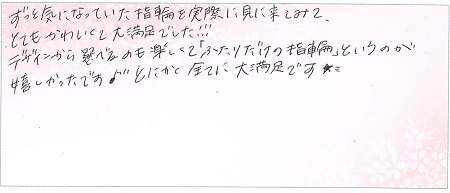 ずっと気になっていた指輪を実際に見に来てみて、
とてもかわいくて大満足でした!!!
デザインから選べるのも楽しくて「ふたりだけの指輪」というのが
嬉しかったです♪ とにかく全てに大満足です★ミ